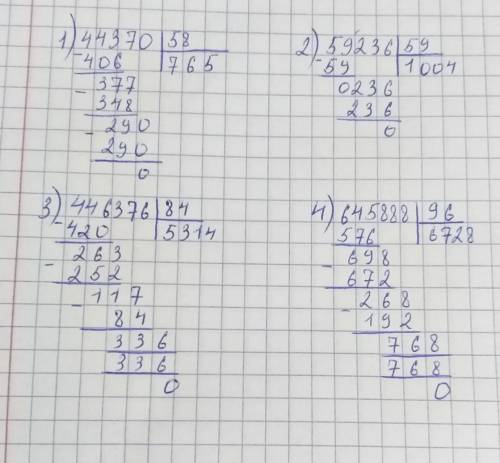 1) 44370 | 58
- 406 | 765
- 377
348
- 290
290
0
2) 59236 | 59
- 59 | 1004
0236
236
0
3) 446376 | 84
- 420 | 5314
- 263
252
- 117
84
336
336
0
4) 645888 | 96
576 | 6728
- 698
672
- 268
192
768
768
0